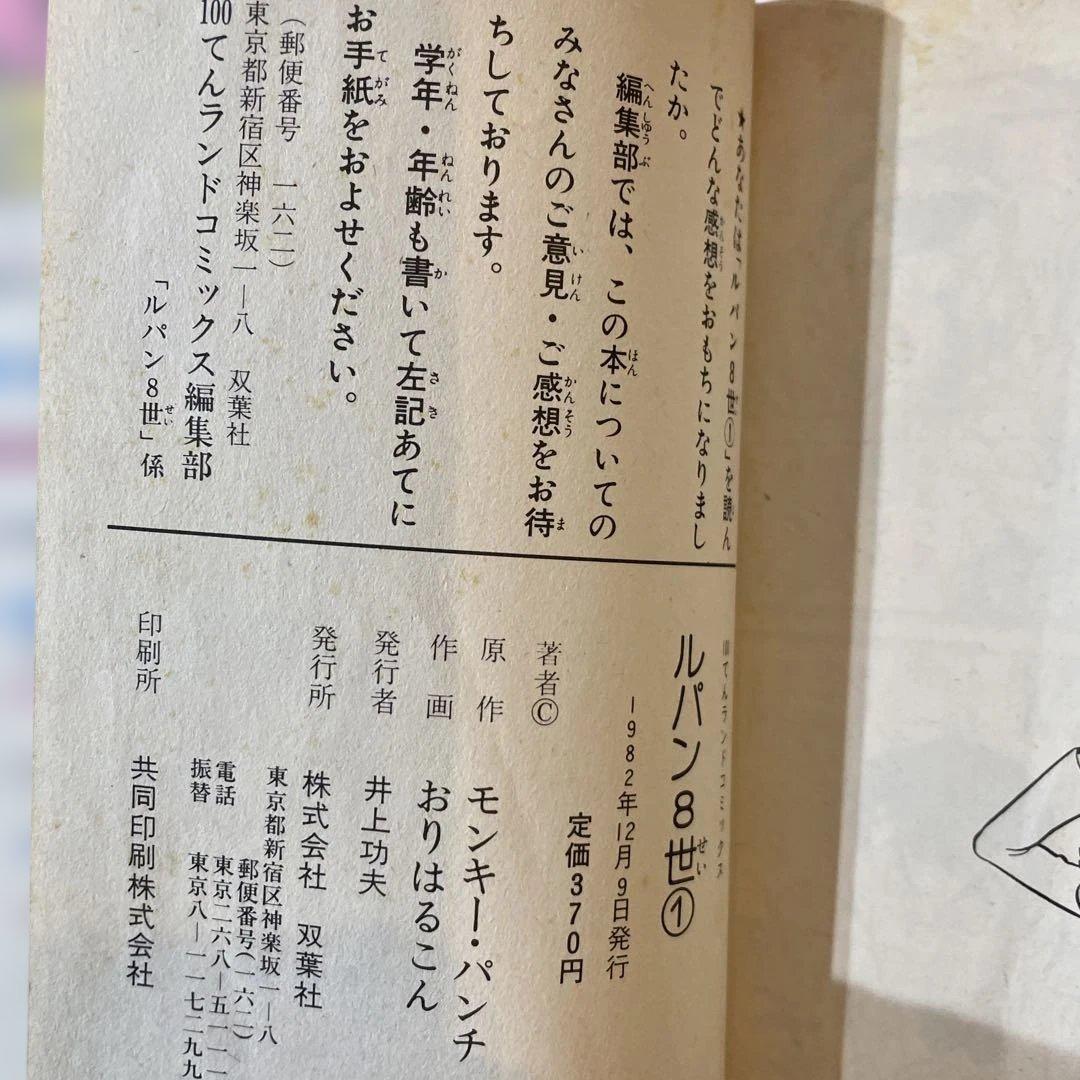 ★あなたは「ルパン8世①」を読ん
でどんな感想をおもちになりまし
たか。
編集部では、この本についての
みなさんのご意見・ご感想をお待
ちしております。
学年・年齢も書いて左記あてに
お手紙をおよせください。
(郵便番号 一六二)
東京都新宿区神楽坂一—八 双葉社
100てんランドコミックス編集部
「ルパン8世」係
100てんランドコミックス
ルパン8世①
1982年12月9日発行
定価370円
著者©
原作 モンキー・パンチ
作画 おりはるこん
発行者 井上功夫
発行所 株式会社 双葉社
東京都新宿区神楽坂一—八
郵便番号(一六二)
電話 東京二六八—五一一一
振替 東京八—一一七二九九
印刷所 共同印刷株式会社